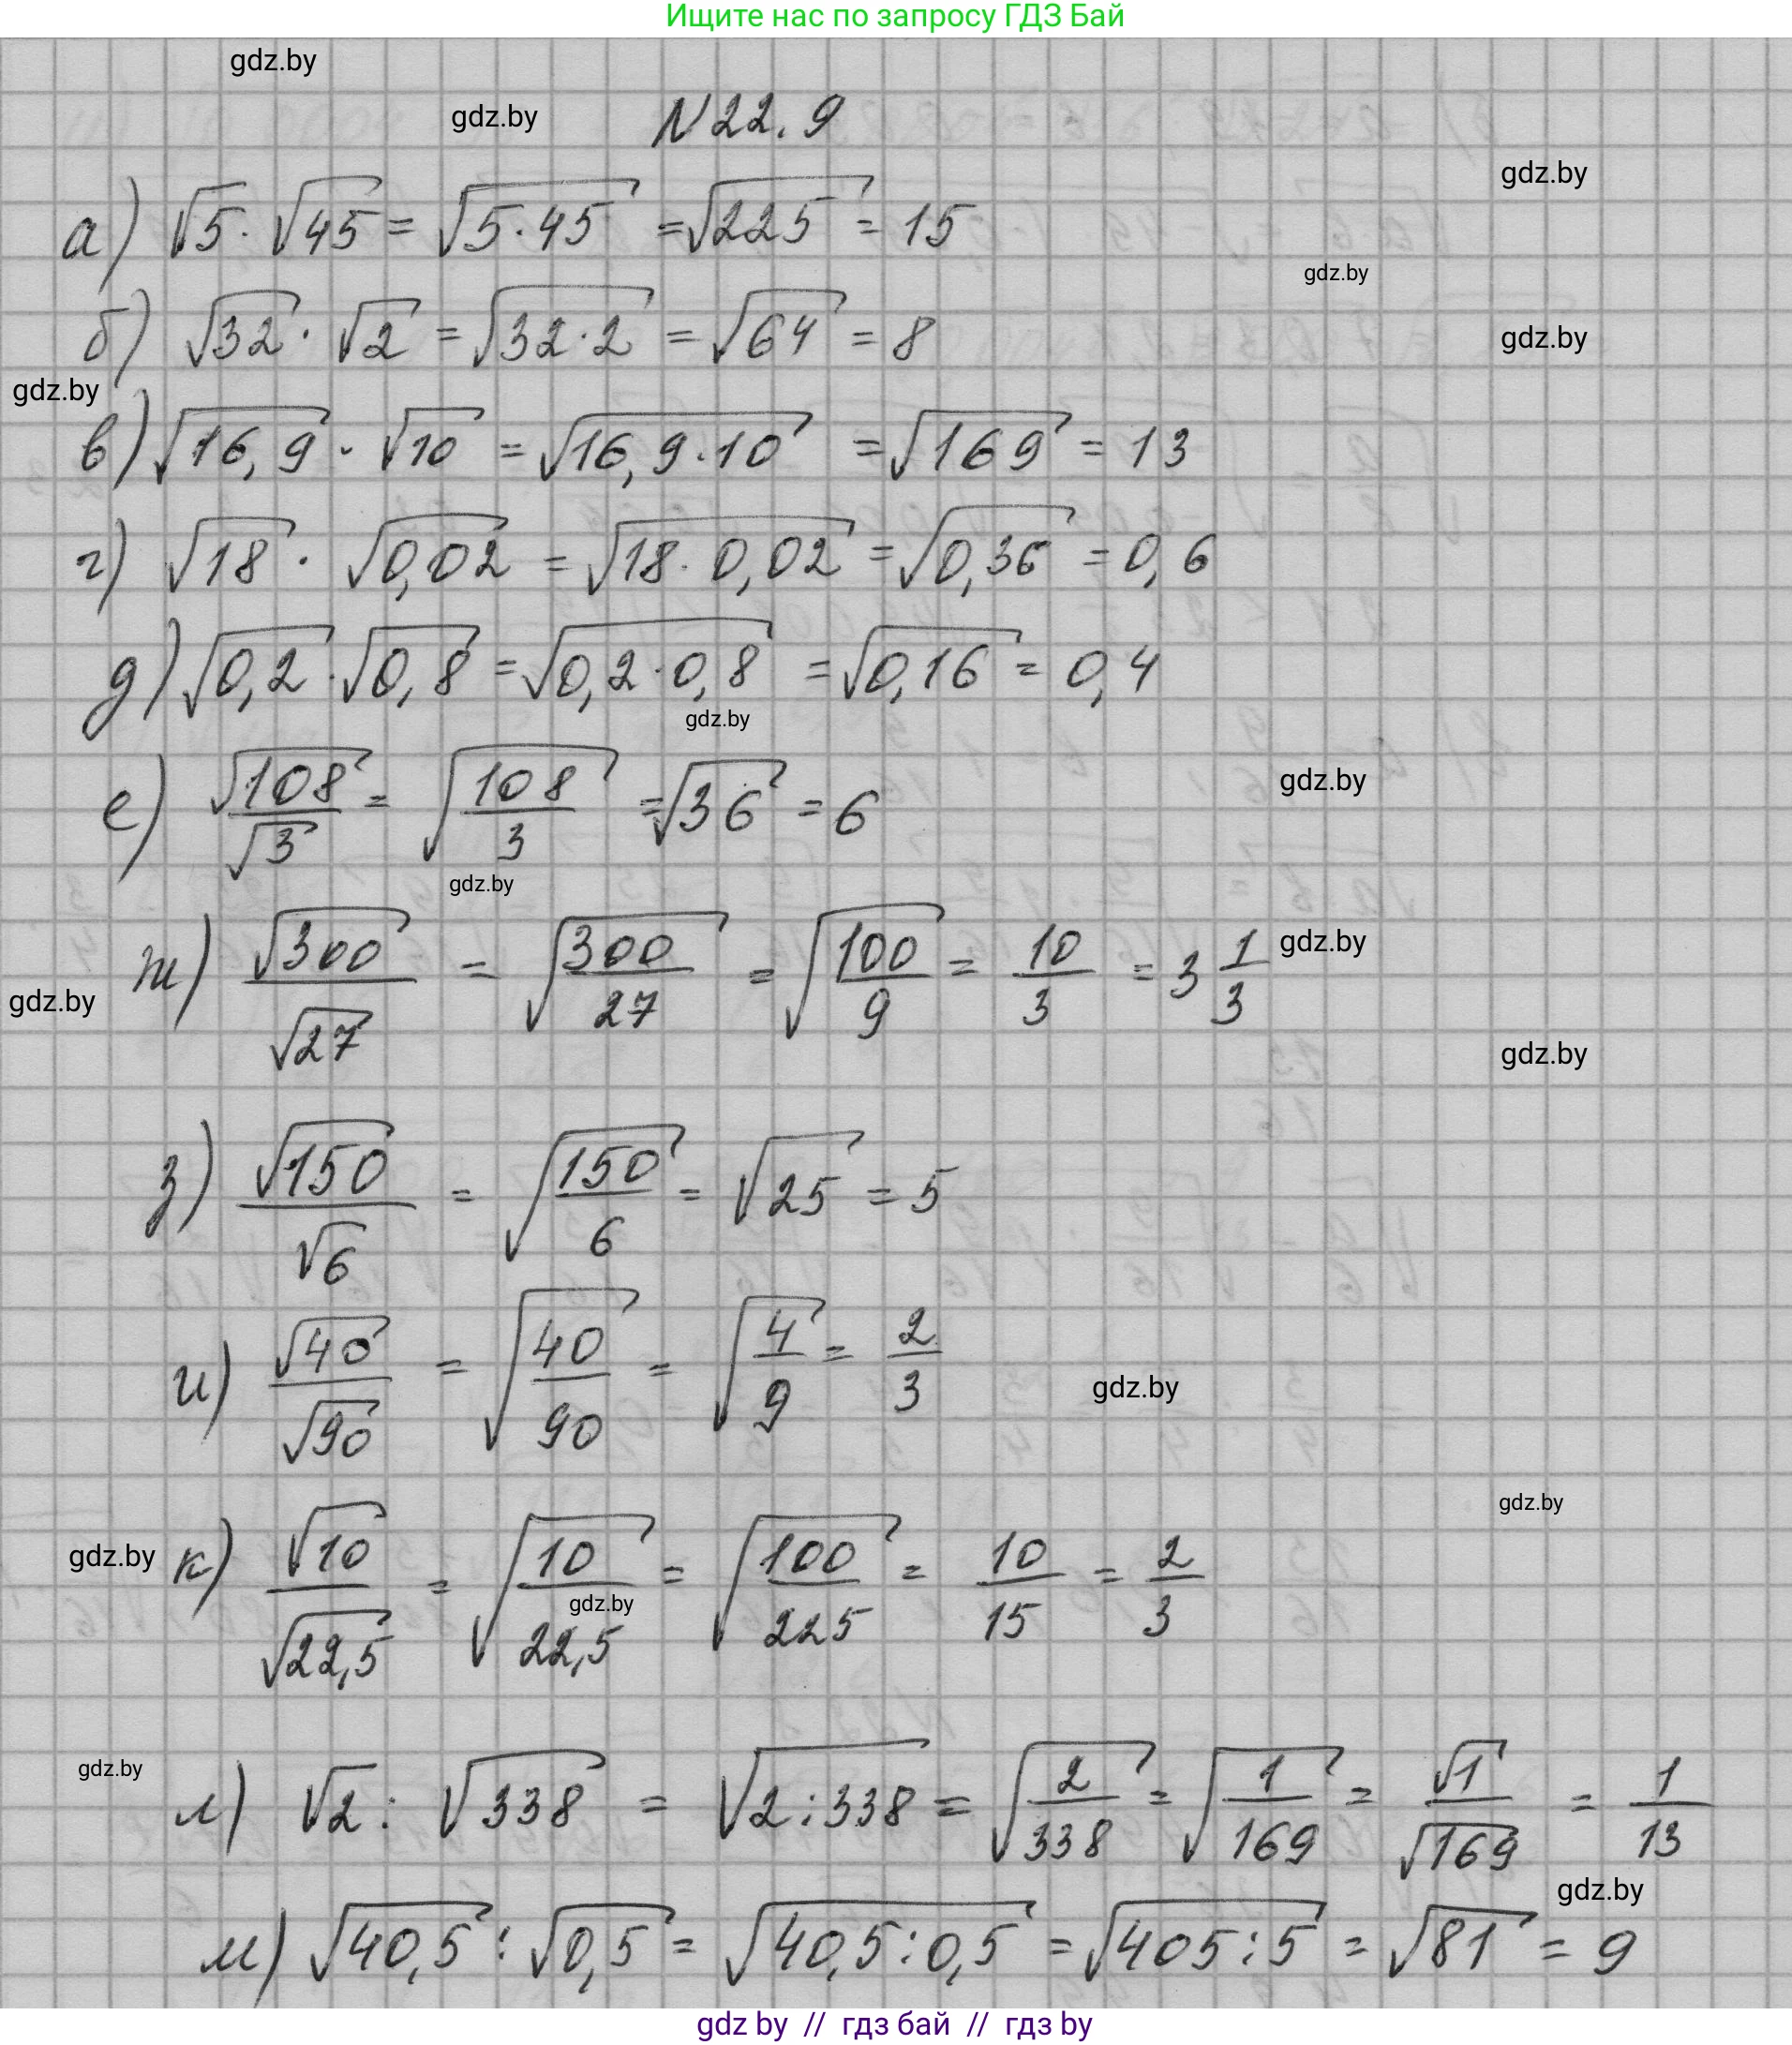 Ищите нас по запросу ГДЗ Бай
gdz.by
gdz.by
N 22.9
gdz.by
а) √5 · √45 = √(5·45) = √225 = 15
gdz.by
б) √32 · √2 = √(32·2) = √64 = 8
gdz.by
gdz.by
в) √16,9 · √10 = √(16,9·10) = √169 = 13
г) √18 · √0,02 = √(18·0,02) = √0,36 = 0,6
д) √0,2 · √0,8 = √(0,2·0,8) = √0,16 = 0,4
gdz.by
е) √108/√3 = √(108/3) = √36 = 6
gdz.by
gdz.by
ж) √300/√27 = √(300/27) = √(100/9) = 10/3 = 3 1/3
gdz.by
gdz.by
gdz.by
з) √150/√6 = √(150/6) = √25 = 5
и) √40/√90 = √(40/90) = √(4/9) = 2/3
gdz.by
gdz.by
gdz.by
к) √10/√22,5 = √(10/22,5) = √(100/225) = 10/15 = 2/3
gdz.by
gdz.by
л) √2 : √338 = √(2:338) = √(2/338) = √(1/169) = √1/√169 = 1/13
gdz.by
м) √40,5 : √0,5 = √(40,5:0,5) = √(405:5) = √81 = 9
gdz by // гдз бай // гдз by